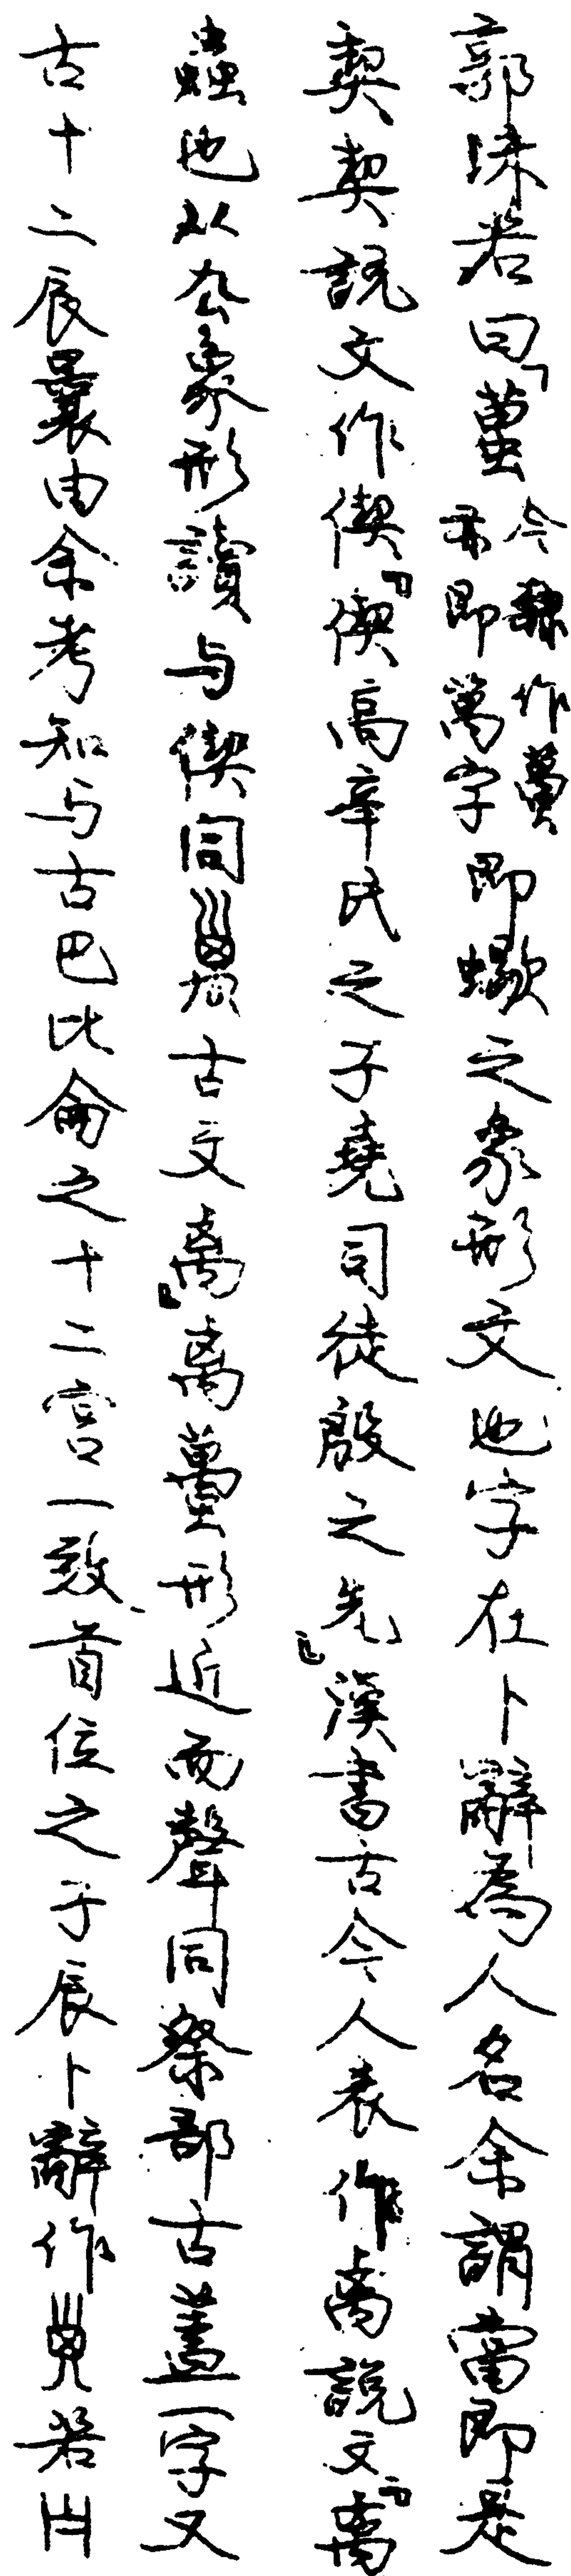 郭沫若曰「蠆今隸作蠆亦即萬字即蠍之象形文也字在卜辭為人名余謂當即是
契契說文作偰「偰高辛氏之子堯司徒殷之先」漢書古今人表作卨說文「卨
蟲也从厹象形讀与偰同古文卨」卨蠆形近而聲同祭部古蓋一字又
古十二辰曩由余考知与古巴比侖之十二宮一致、首位之子辰卜辭作若